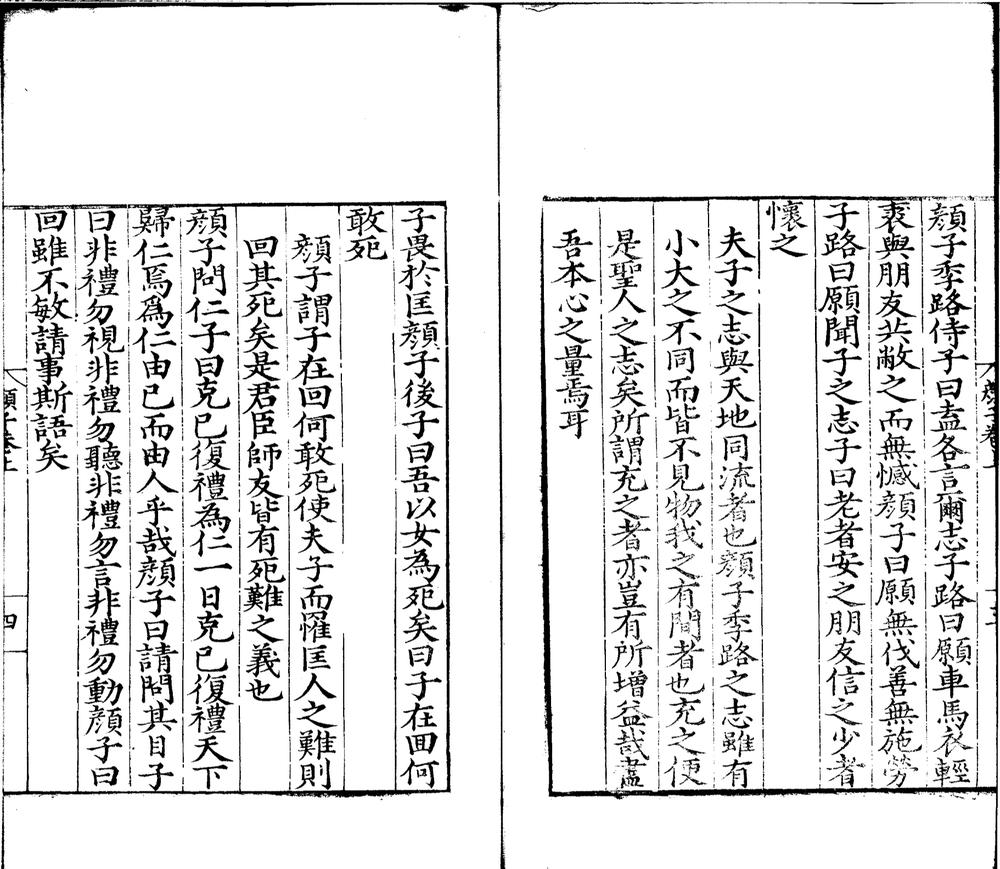 顔子季路侍子曰盍各言爾志子路曰願車馬衣輕
裘與朋友共敝之而無憾顔子曰願無伐善無施勞
子路曰願聞子之志子曰老者安之朋友信之少者
懷之
夫子之志與天地同流者也顔子季路之志雖有
小大之不同而皆不見物我之有間者也充之便
是聖人之志矣所謂充之者亦豈有所增益哉盡
吾本心之量焉耳
子畏於匡顔子後子曰吾以女為死矣曰子在回何
敢死
顔子謂子在回何敢死使夫子而罹匡人之難則
回其死矣是君臣師友皆有死難之義也
顔子問仁子曰克己復禮為仁一日克己復禮天下
歸仁焉爲仁由己而由人乎哉顔子曰請問其目子
曰非禮勿視非禮勿聽非禮勿言非禮勿動顔子曰
回雖不敏請事斯語矣
顔子卷上
四